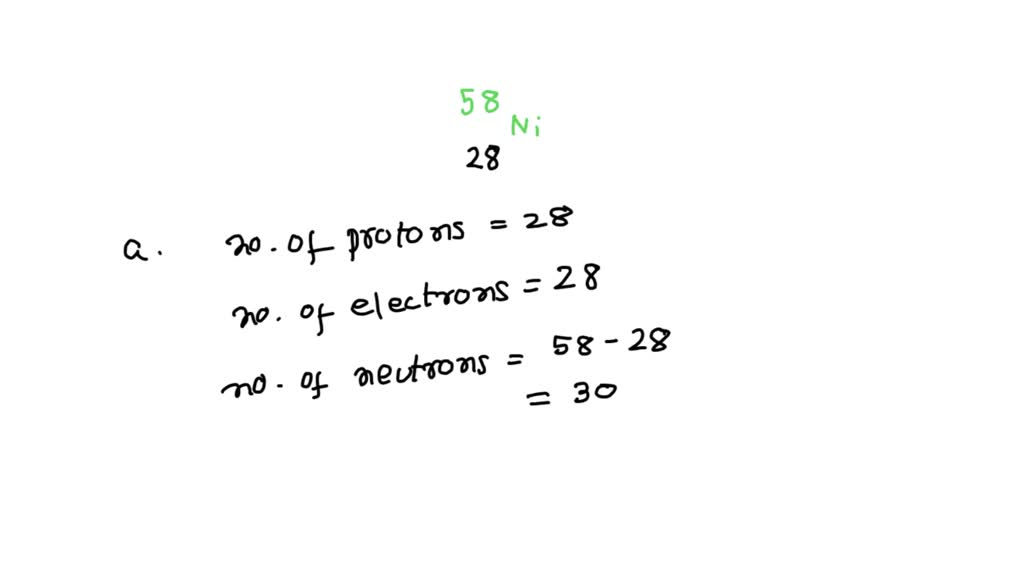 58
Ni
28
a. no. of protons = 28
no. of electrons = 28
no. of neutrons = 58 - 28
= 30